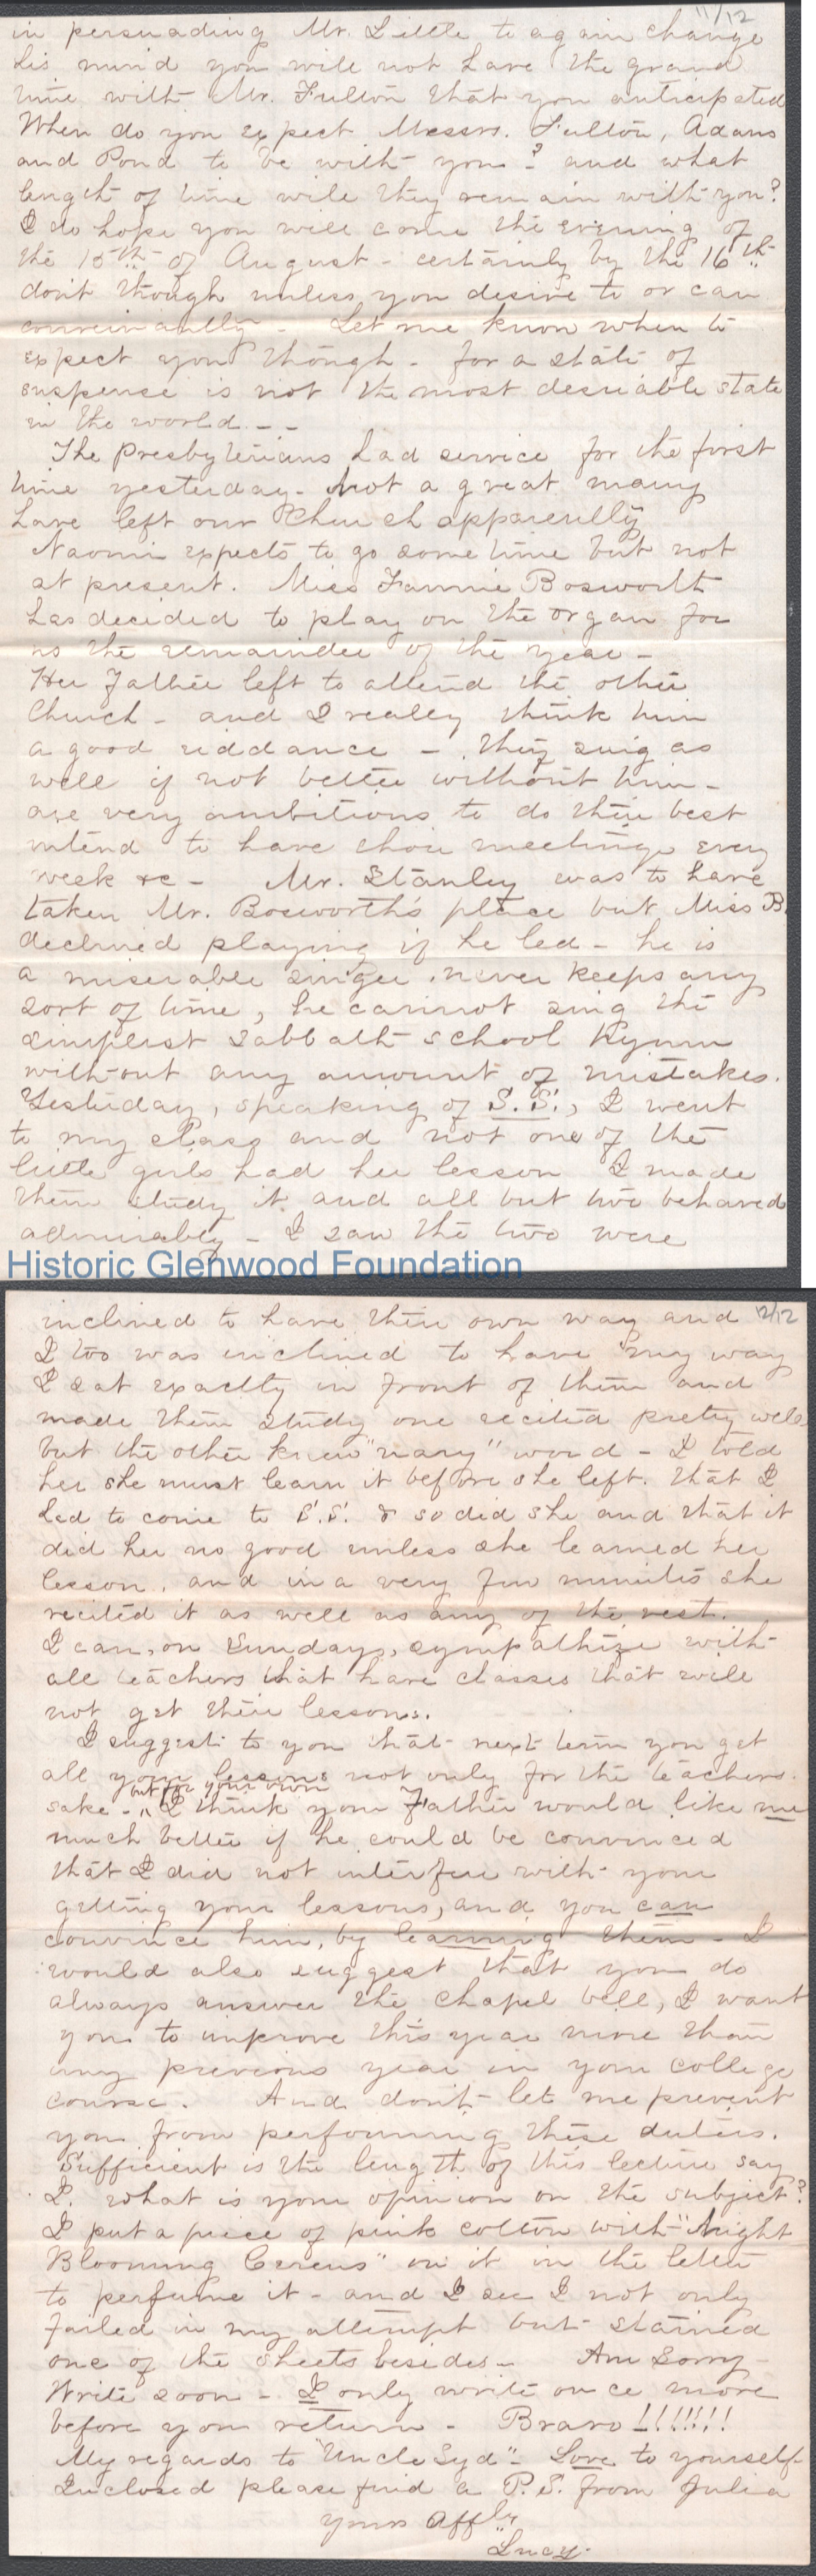 11/12
in persuading Mr. Little to again change
his mind you will not have the grand
time with Mr. Fulton that you anticipated
When do you expect Messrs. Fulton, Adams
and Pond to be with you? and what
length of time will they remain with you?
I do hope you will come the evening of
the 15th of August - certainly by the 16th
don't though unless you desire to or can
conveniantly - Let me know when to
expect you though - for a state of
suspense is not the most desirable state
in the world - -
The Presbyterians had service for the first
time yesterday - Not a great many
have left our Church apparently
Naomi expects to go some time but not
at present. Miss Fannie Bosworth
has decided to play on the organ for
us the remainder of the year -
Her Father left to attend the other
Church - and I really think him
a good riddance - they sing as
well if not better without him -
are very ambitious to do their best
intend to have choir meetings every
week &c - Mr. Stanley was to have
taken Mr. Bosworth's place but Miss B.
declined playing if he led - he is
a miserable singer, never keeps any
sort of time, he cannot sing the
simplest Sabbath school hymn
without any amount of mistakes.
Yesterday, speaking of S.S., I went
to my class and not one of the
little girls had her lesson I made
them study it and all but two behaved
admirably - I saw the two were
Historic Glenwood Foundation
12/12
inclined to have their own way and
I too was inclined to have my way
I sat exactly in front of them and
made them study one recited pretty well
but the other knew "nary" word - I told
her she must learn it before she left. that I
had to come to S.S. & so did she and that it
did her no good unless she learned her
lesson, and in a very few minutes she
recited it as well as any of the rest.
I can, on Sundays, sympathize with
all teachers that have classes that will
not get their lessons.
I suggest to you that next term you get
all your lessons not only for the teachers
but for your own
sake - " I think your Father would like me
much better if he could be convinced
that I did not interfere with your
getting your lessons, and you can
convince him, by learning them - I
would also suggest that you do
always answer the chapel bell, I want
you to improve this year more than
any previous year in your college
course. And don't let me prevent
you from performing these duties.
Sufficient is the length of this lecture say
I. what is your opinion on the subject?
I put a piece of pink cotton with "Night
Blooming Cereus" on it in the letter
to perfume it - and I see I not only
failed in my attempt but stained
one of the sheets besides - Am sorry -
Write soon - I only write once more
before you return - Bravo!!!!!!!
My regards to "Uncle Syd" - Love to yourself -
Inclosed please find a P.S. from Julia
Yours Affly
Lucy.